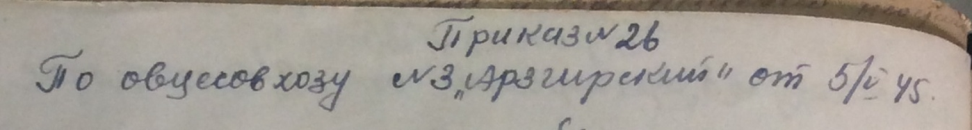 Приказ № 26
По овцесовхозу № 3 „Арзгирский“ от 5/V 45.